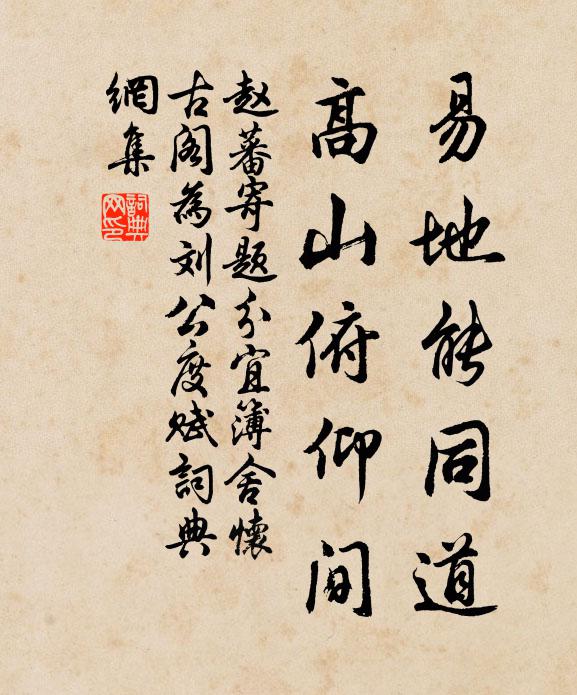 易地能同道
高山俯仰间
赵蕃寄题分宜簿舍怀
古阁为刘公度赋詞典
網集
詞典
网印